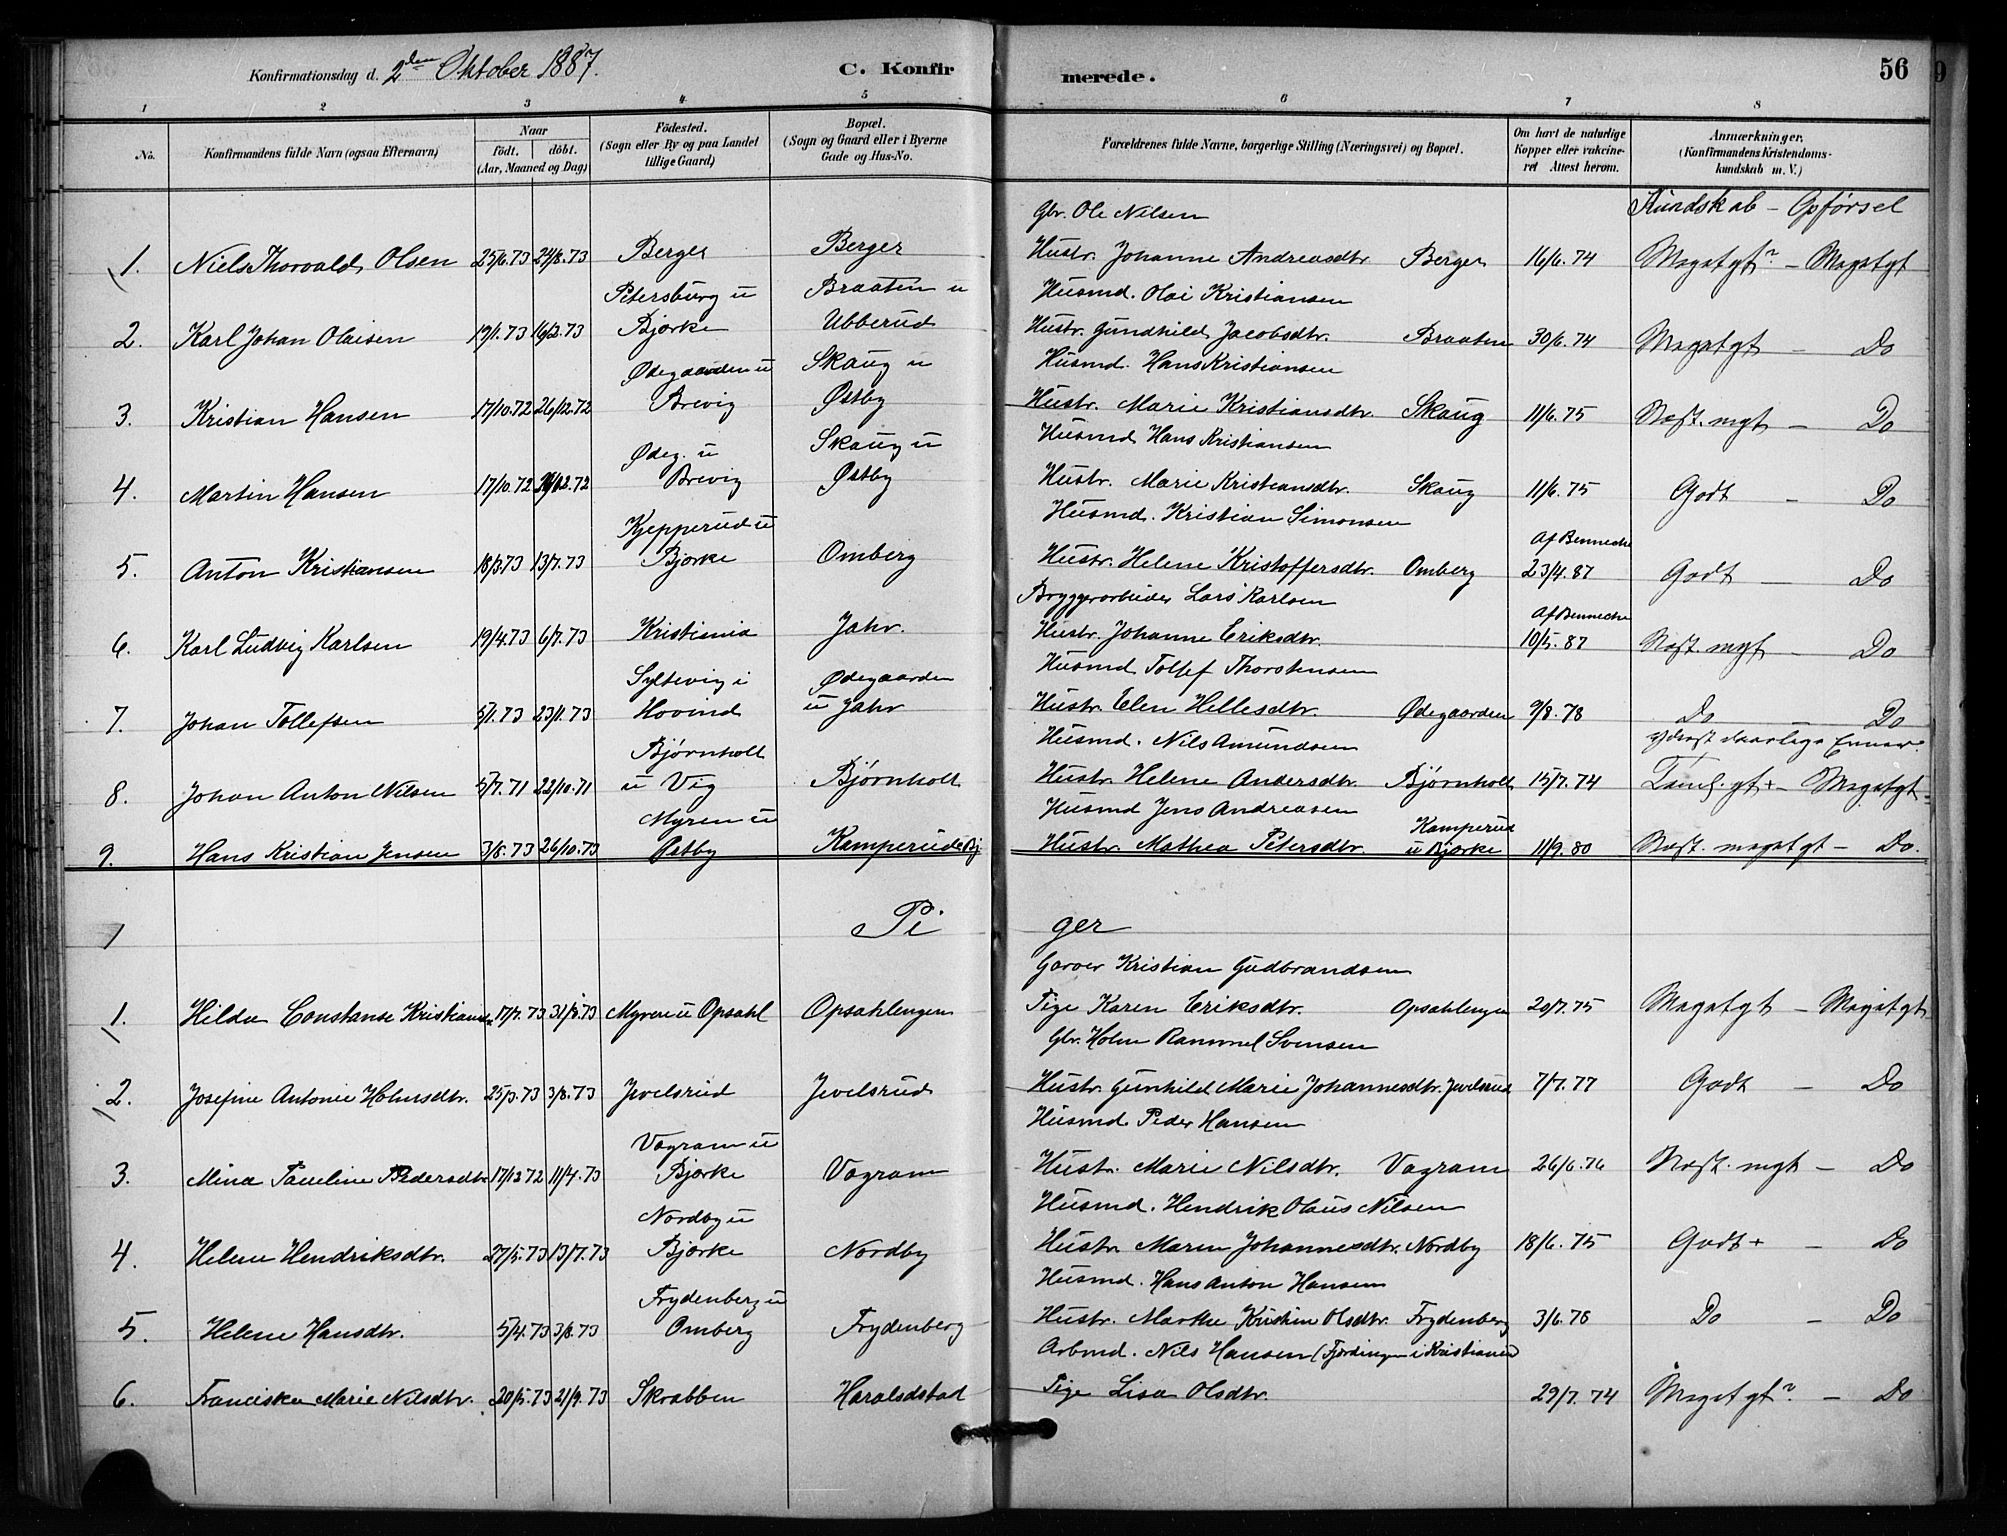 Konfirmationsdag d. 2den Oktober 1887. C. Konfirmerede. 56
1 2 3 4 5 6 7 8
No. Konfirmandens fulde Navn (ogsaa Efternavn) Naar födt. döbt. (Aar, Maaned og Dag) Födested. (Sogn eller By og paa Landet tillige Gaard) Bopæl. (Sogn og Gaard eller i Byerne Gade og Hus-No. Forældrenes fulde Navne, borgerlige Stilling (Næringsvei) og Bopæl. Om havt de naturlige Kopper eller vakcineret Attest herom. Anmærkninger, (Konfirmandens Kristendomskundskab m. V.)
Gbr. Ole Nilsen Kundskab - Opførsel
1. Niels Thorvald Olsen 25/6.73 24/8.73 Berger Berger Hustr. Johanne Andreasdtr Berger 16/6.74 Megetgt? - Megetgt
Petersburg u Braaten u Husmd. Olai Kristiansen
2. Karl Johan Olaisen 19/1.73 16/2.73 Bjørke Ubberud Hustr. Gundhild Jacobsdtr. Braaten 30/6.74 Megetgt - Do
Ødegaarden u Skaug u Husmd. Hans Kristiansen
3. Kristian Hansen 17/10.72 26/12.72 Brevig Østby Hustr. Marie Kristiansdtr. Skaug 11/6.75 Næst. mgt - Do
Ødeg. u Skaug u Husmd Hans Kristiansen
4. Martin Hansen 17/10.72 26/12.72 Brevig Østby Hustr. Marie Kristiansdtr. Skaug 11/6.75 Godt - Do
Kjepperud u Husmd. Kristian Simonsen Af Bennecke
5. Anton Kristiansen 18/3.73 13/7.73 Bjørke Omberg Hustr. Helene Kristoffersdtr. Omberg 23/4.87 Godt - Do
Bryggerarbeider Lars Karlsen Af Bennecke
6. Karl Ludvig Karlsen 19/4.73 6/7.73 Kristiania Jahr. Hustr. Johanne Eriksdtr. 10/5.87 Næst. mgt - Do
Syltevig i Ødegaarden Husmd Tollef Thorstensen
7. Johan Tollefsen 5/1.73 23/1.73 Hovind u Jahr Hustr. Elen Hellesdtr. Ødegaarden 9/8.78 Do - Do
Bjørnholt Husmd. Nils Amundsen yderst daarlige Evner
8. Johan Anton Nilsen 5/7.71 22/10.71 u Vig Bjørnholt Hustr. Helene Andersdtr. Bjørnholt 15/7.74 Teml. gt+ - Megetgt
Myren u Husmd Jens Andreasen Kamperud
9. Hans Kristian Jensen 3/8.73 26/10.73 Østby Kamperud u Bj Hustr. Mathea Petersdtr. u Bjørke 11/9.80 Næst. megetgt - Do.
Piger
Garver Kristian Gudbrandsen
1. Hilda Constanse Kristiansd 17/7.73 31/8.73 Myren u Opsahl Opsahlengen Pige Karen Eriksdtr. Opsahlengen 20/7.75 Megetgt - Megetgt
Gbr. Holm Rammel Svensen
2. Josefine Antonie Holmsdtr. 25/3.73 3/8.73 Jvelsrud Jvelsrud Hustr. Gunhild Marie Johannesdtr. Jvelsrud 7/7.77 Godt - Do
Vagram u Husmd. Peder Hansen
3. Mina Pauline Pedersdtr 17/12 72 11/4.73 Bjørke Vagram Hustr. Marie Nilsdtr. Vagram 26/6.76 Næst. mgt - Do
Nordby u Husmd. Hendrik Olaus Nilsen
4. Helene Hendriksdtr. 27/5.73 13/7.73 Bjørke Nordby Hustr. Maren Johannesdtr. Nordby 18/6.75 Godt+ - Do
Frydenberg u Husmd. Hans Anton Hansen
5. Helene Hansdtr. 5/4.73 3/8.73 Omberg Frydenberg Hustr. Marthe Kristine Olsdtr. Frydenberg 3/6.78 Do - Do
Arbmd. Nils Hansen (Fjerdingen i Kristiania)
6. Franciska Marie Nilsdtr. 20/5.73 21/9.73 Skrabben Haraldstad Pige Lisa Olsdtr. 29/7.74 Megetgt? - Do